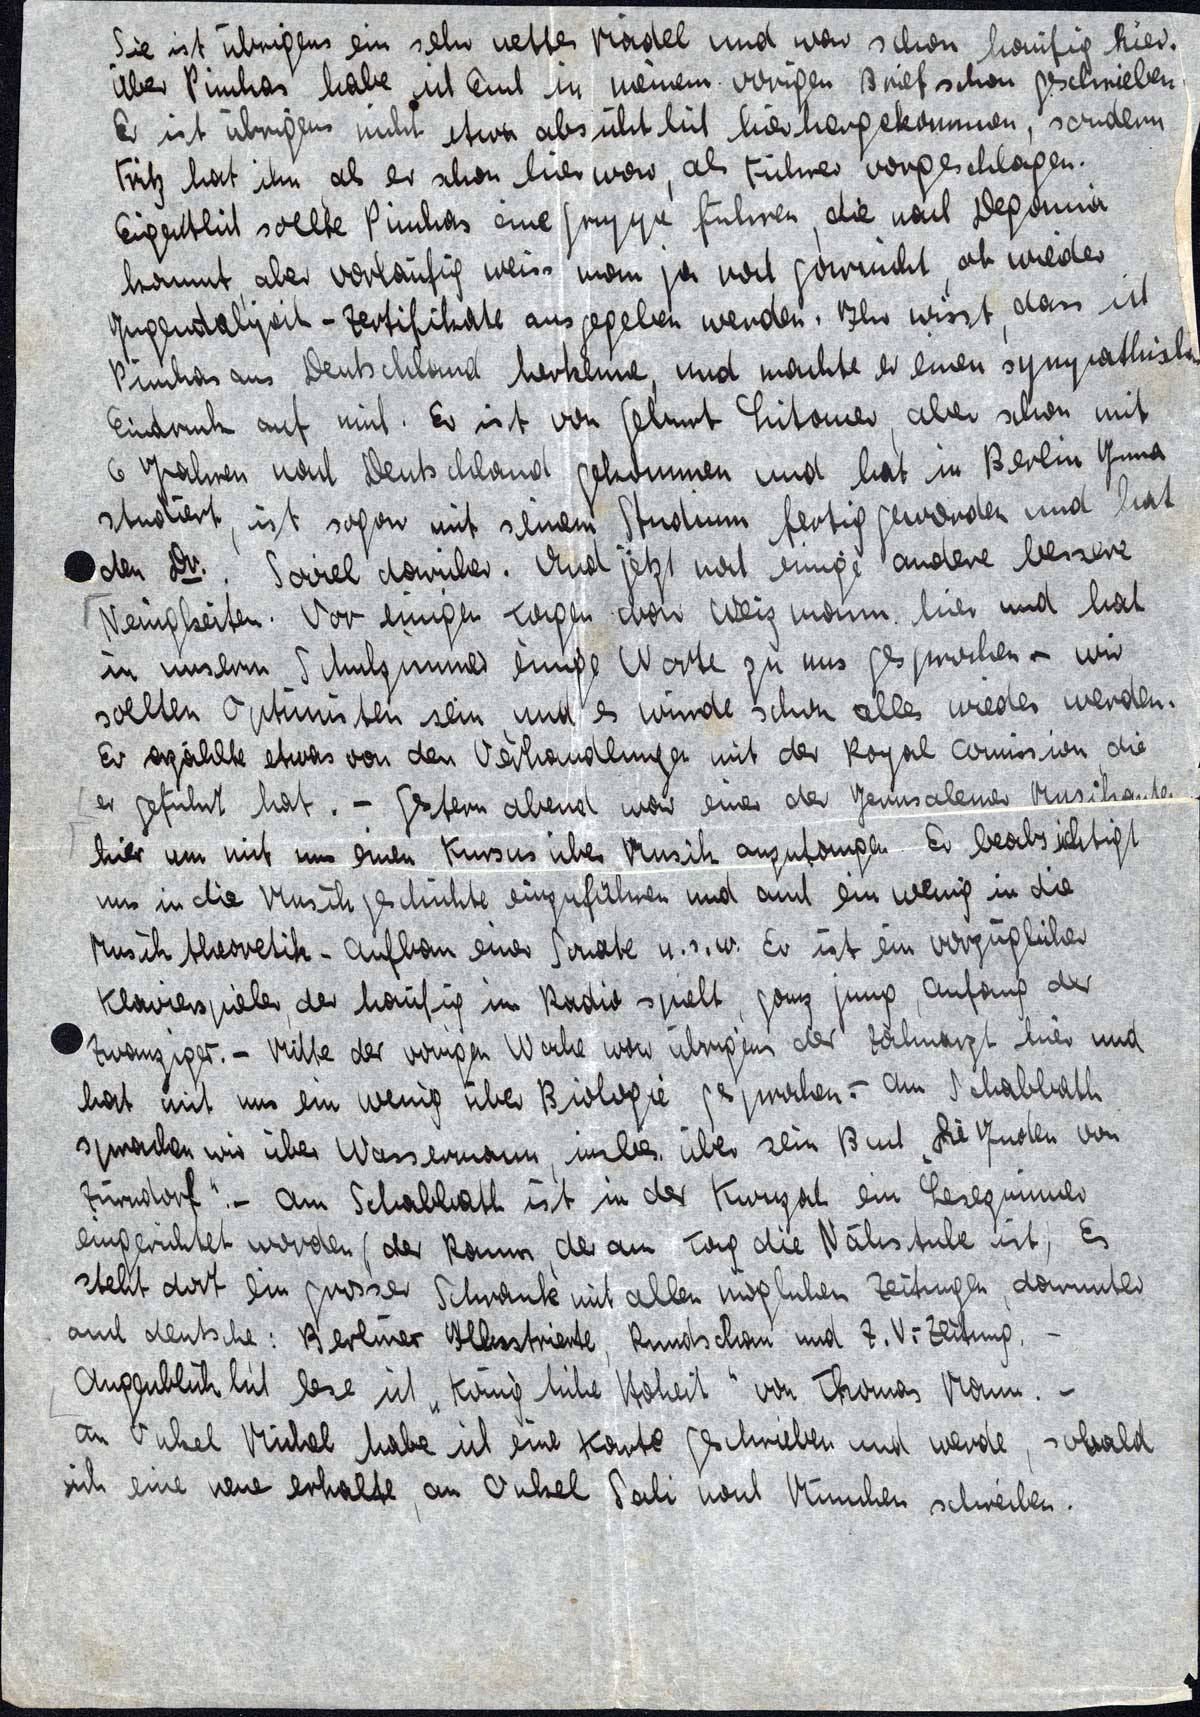 Sie ist übrigens ein sehr nettes Mädel und war schon häufig hier.
Über Pinchas habe ich Euch in meinem vorigen Brief schon geschrieben.
Er ist übrigens nicht etwa absichtlich hierhergekommen, sondern
Fritz hat ihn als er schon hier war, als Führer vorgeschlagen.
Eigentlich sollte Pinchas eine Gruppe führen, die nach Degania
kommt, aber vorläufig weiss man ja noch garnicht, ob wieder
Jugendalijah-Zertifikate ausgegeben werden. Ihr wisst, dass ich
Pinchas aus Deutschland her kenne, und machte er einen sympathischen
Eindruck auf mich. Er ist von Geburt Litauer, aber schon mit
6 Jahren nach Deutschland gekommen und hat in Berlin Jura
studiert, ist sogar mit seinem Studium fertig geworden und hat
den Dr.. Soviel darüber. Und jetzt noch einige andere bessere
Neuigkeiten. Vor einigen Tagen war Weizmann hier und hat
in unserm Schulzimmer einige Worte zu uns gesprochen - wir
sollten Optimisten sein und es würde schon alles wieder werden.
Er erzählte etwas von den Verhandlungen mit der Royal Comission, die
er geführt hat. - Gestern abend war einer der Jerusalemer Musikanten
hier um mit uns einen Kursus über Musik anzufangen. Er beabsichtigt
uns in die Musikgeschichte einzuführen und auch ein wenig in die
Musiktheoretik - Aufbau einer Sonate u.s.w. Er ist ein vorzüglicher
Klavierspieler, der häufig im Radio spielt, ganz jung, Anfang der
Zwanziger. - Mitte der vorigen Woche war übrigens der Zahnarzt hier und
hat mit uns ein wenig über Biologie gesprochen. - Am Schabbath
sprachen wir über Wassermann, insbes. über sein Buch „Die Juden von
Zirndorf“. - Am Schabbath ist in der ein Lesezimmer
eingerichtet worden (der Raum, der am Tag die Nähstube ist) Es
steht dort ein grosser Schrank mit allen möglichen Zeitungen, darunter
auch deutsche: Berliner Illustrierte, Rundschau und Z.V.-Zeitung. -
Augenblicklich lese ich „Königliche Hoheit“ von Thomas Mann. -
An Onkel Michel habe ich eine Karte geschrieben und werde, sobald
ich eine neue erhalte, an Onkel Sali nach München schreiben.